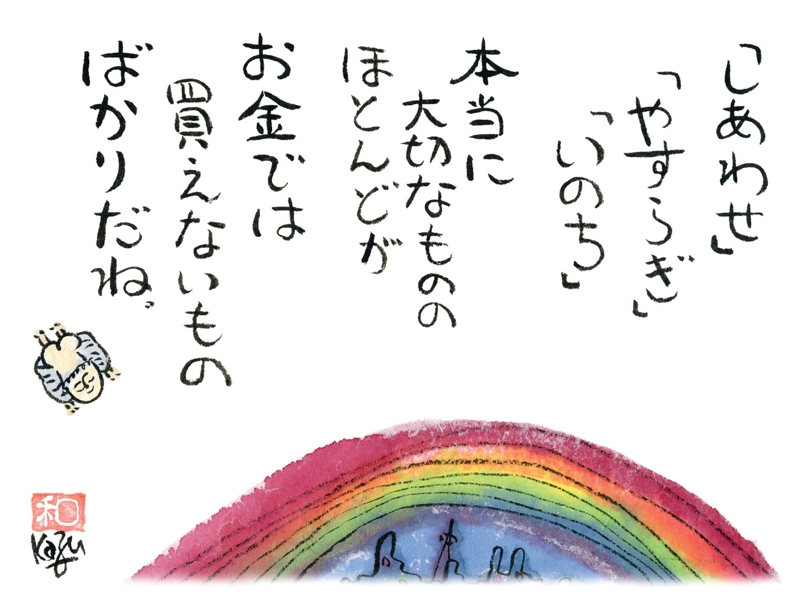 「しあわせ」
「やすらぎ」
「いのち」
本当に
大切なものの
ほとんどが
お金では
買えないもの
ばかりだね。
和
Kazu